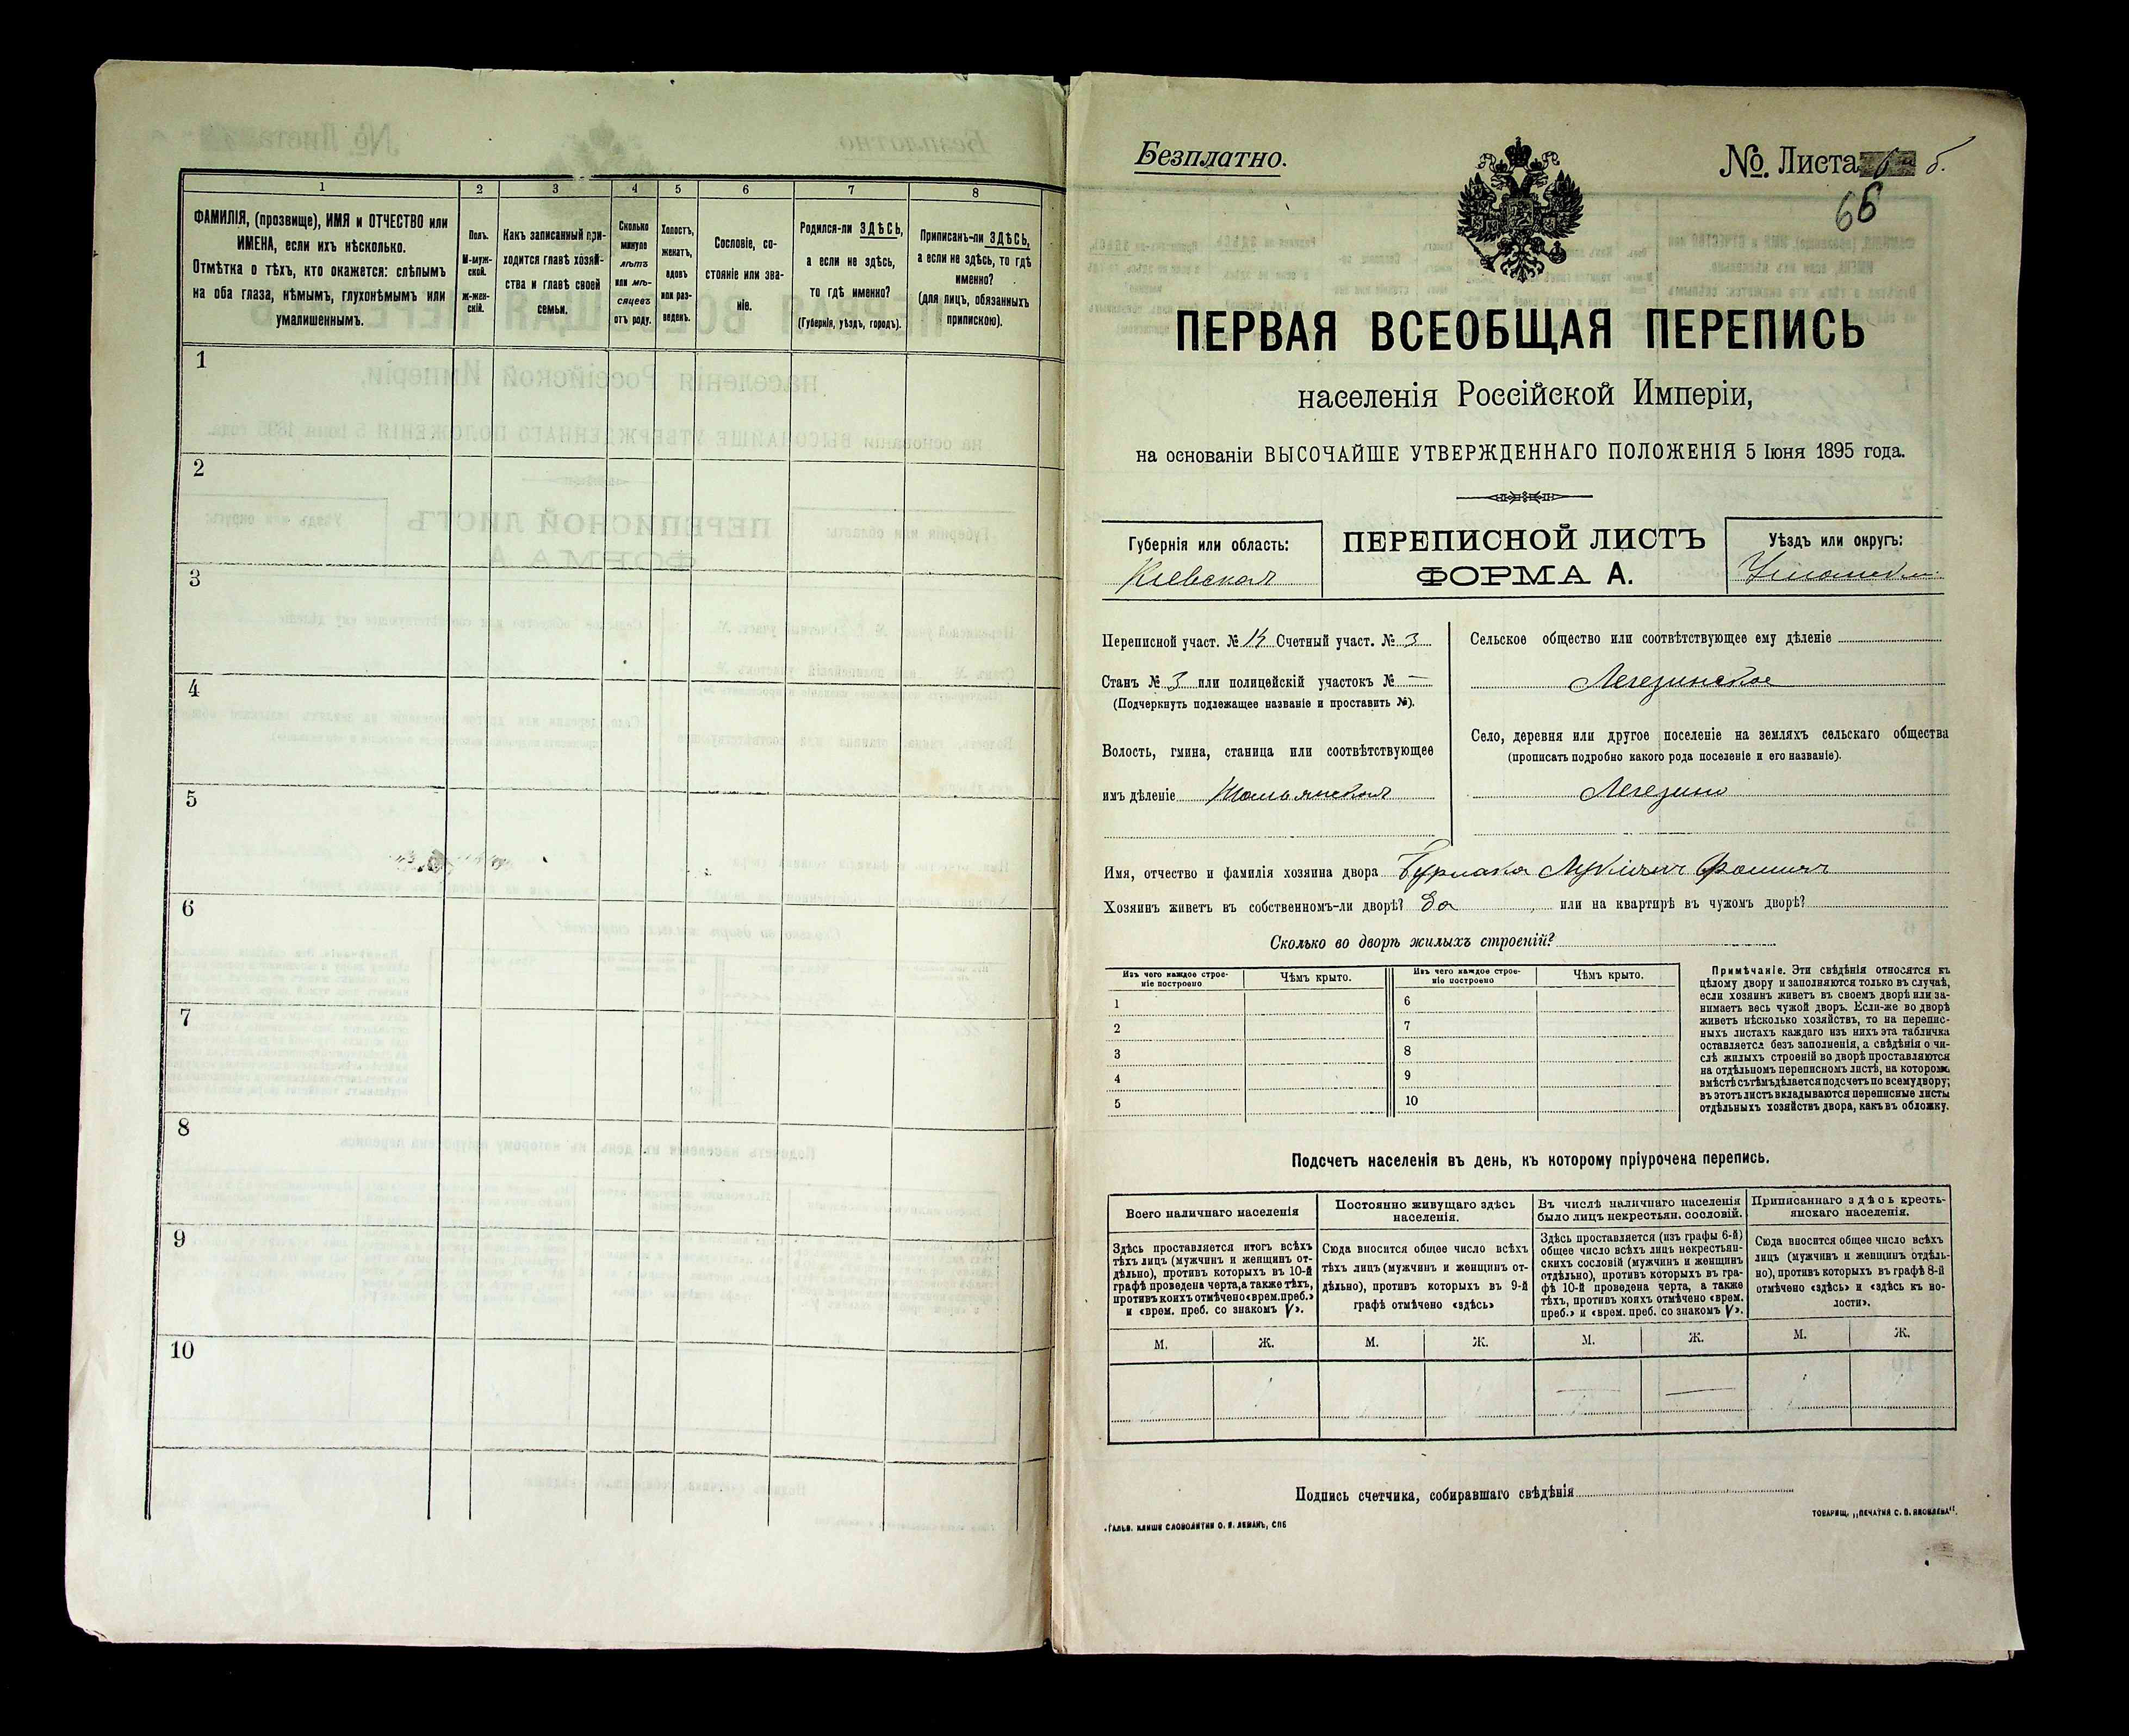 1 2 3 4 5 6 7 8
ФАМИЛІЯ, (прозвище), ИМЯ и ОТЧЕСТВО или
ИМЕНА, если ихъ нѣсколько.
Отмѣтка о тѣхъ, кто окажется: слѣпымъ
на оба глаза, нѣмымъ, глухонѣмымъ или
умалишеннымъ.
Полъ.
М-муж-
ской.
Ж-жен-
скій.
Какъ записанный при-
ходится главѣ хозяй-
ства и главѣ своей
семьи.
Сколько
минуло
лѣтъ
или мѣ-
сяцевъ
отъ роду.
Холостъ,
женатъ,
вдовъ
или раз-
веденъ.
Сословіе, со-
стояніе или зва-
ніе.
Родился-ли ЗДѢСЬ,
а если не здѣсь,
то гдѣ именно?
(Губернія, уѣздъ, городъ).
Приписанъ-ли ЗДѢСЬ,
а если не здѣсь, то гдѣ
именно?
(для лицъ, обязанныхъ
припискою).
1
2
3
4
5
6
7
8
9
10
Безплатно.
№. Листа б.
66
ПЕРВАЯ ВСЕОБЩАЯ ПЕРЕПИСЬ
населенія Россійской Имперіи,
на основаніи ВЫСОЧАЙШЕ УТВЕРЖДЕННАГО ПОЛОЖЕНІЯ 5 Іюня 1895 года.
Губернія или область:
Кіевская
ПЕРЕПИСНОЙ ЛИСТЪ
ФОРМА А.
Уѣздъ или округъ:
Переписной участ. № Счетный участ. № 3
Станъ № 3 или полицейскій участокъ № —
(Подчеркнуть подлежащее названіе и проставить №).
Волость, гмина, станица или соотвѣтствующее
имъ дѣленіе
Сельское общество или соотвѣтствующее ему дѣленіе
Легезинское
Село, деревня или другое поселеніе на земляхъ сельскаго общества
(прописать подробно какого рода поселеніе и его названіе).
Легезино
Имя, отчество и фамилія хозяина двора
Хозяинъ живетъ въ собственномъ-ли дворѣ? Да или на квартирѣ въ чужомъ дворѣ?
Сколько во дворѣ жилыхъ строеній?
Изъ чего каждое строе-
ніе построено
Чѣмъ крыто.
Изъ чего каждое строе-
ніе построено
Чѣмъ крыто.
1 6
2 7
3 8
4 9
5 10
Примѣчаніе. Эти свѣдѣнія относятся къ
цѣлому двору и заполняются только въ случаѣ,
если хозяинъ живетъ въ своемъ дворѣ или за-
нимаетъ весь чужой дворъ. Если-же во дворѣ
живетъ нѣсколько хозяйствъ, то на перепис-
ныхъ листахъ каждаго изъ нихъ эта табличка
оставляется безъ заполненія, а свѣдѣнія о чи-
слѣ жилыхъ строеній во дворѣ проставляются
на отдѣльномъ переписномъ листѣ, на которомъ
вмѣстѣ съ тѣмъ дѣлается подсчетъ по всему двору;
въ этотъ листъ вкладываются переписные листы
отдѣльныхъ хозяйствъ двора, какъ въ обложку.
Подсчетъ населенія въ день, къ которому пріурочена перепись.
Всего наличнаго населенія
Здѣсь проставляется итогъ всѣхъ
тѣхъ лицъ (мужчинъ и женщинъ от-
дѣльно), противъ которыхъ въ 10-й
графѣ проведена черта, а также тѣхъ,
противъ коихъ отмѣчено «врем. преб.»
и «врем. преб. со знакомъ V».
Постоянно живущаго здѣсь
населенія.
Сюда вносится общее число всѣхъ
тѣхъ лицъ (мужчинъ и женщинъ от-
дѣльно), противъ которыхъ въ 9-й
графѣ отмѣчено «здѣсь»
Въ числѣ наличнаго населенія
было лицъ некрестьян. сословій.
Здѣсь проставляется (изъ графы 6-й)
общее число всѣхъ лицъ некрестьян-
скихъ сословій (мужчинъ и женщинъ
отдѣльно), противъ которыхъ въ гра-
фѣ 10-й проведена черта, а также
тѣхъ, противъ коихъ отмѣчено «врем.
преб.» и «врем. преб. со знакомъ V».
Приписаннаго здѣсь кресть-
янскаго населенія.
Сюда вносится общее число всѣхъ
лицъ (мужчинъ и женщинъ отдѣль-
но), противъ которыхъ въ графѣ 8-й
отмѣчено «здѣсь» и «здѣсь къ во-
лости».
М. Ж. М. Ж. М. Ж. М. Ж.
Подпись счетчика, собиравшаго свѣдѣнія
ГАЛЬВ. КЛИШЕ СЛОВОЛИТНИ О. И. ЛЕМАНЪ, СПБ
ТОВАРИЩ. „ПЕЧАТНЯ С. П. ЯКОВЛЕВА“.